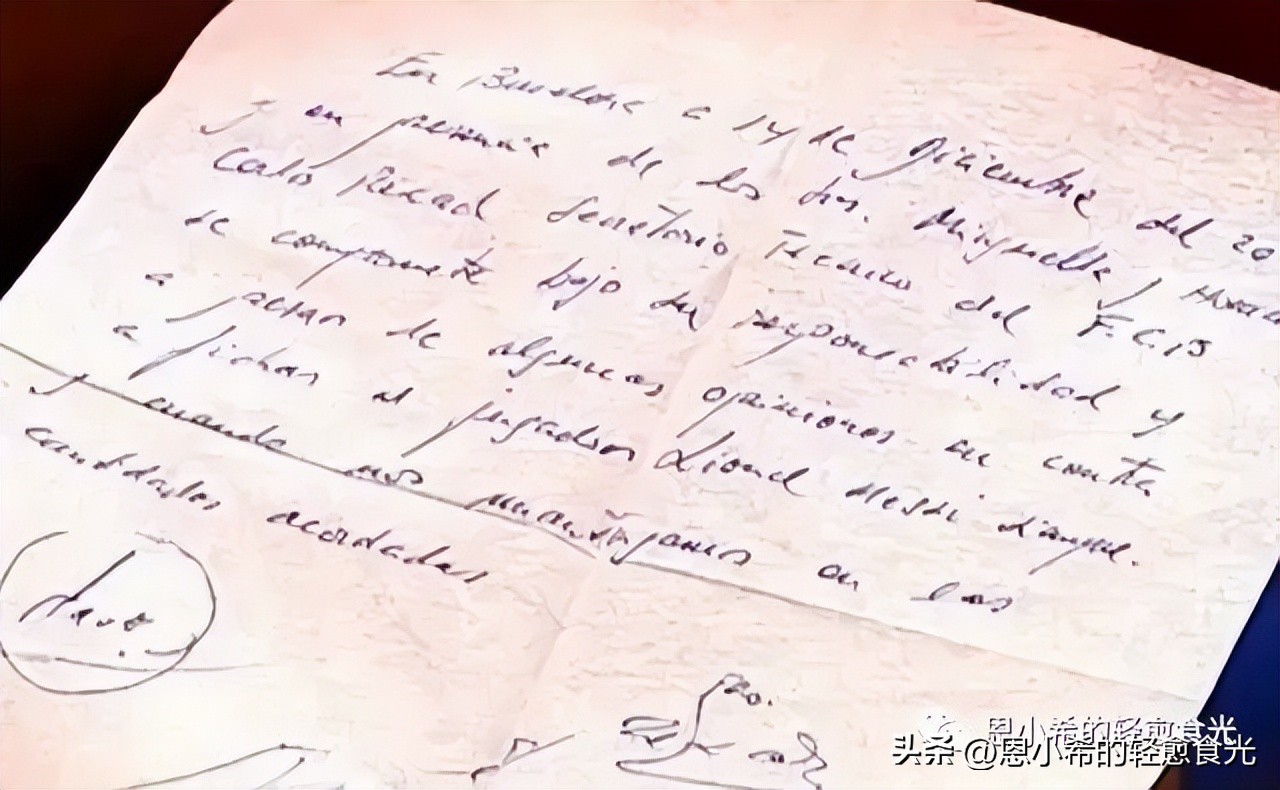 En Barcelona a 14 de Diciembre del 20
y en presencia de los Srs. Minguella y Horacio
Carlos Rexach Secretario Tecnico del F.C.B
se compromete bajo su responsabilidad y
a pesar de algunas opiniones en contra
a fichar al jugador Lionel Messi siempre
y cuando nos mantengamos en las
cantidades acordadas
恩小希的轻愈食光
头条 @恩小希的轻愈食光